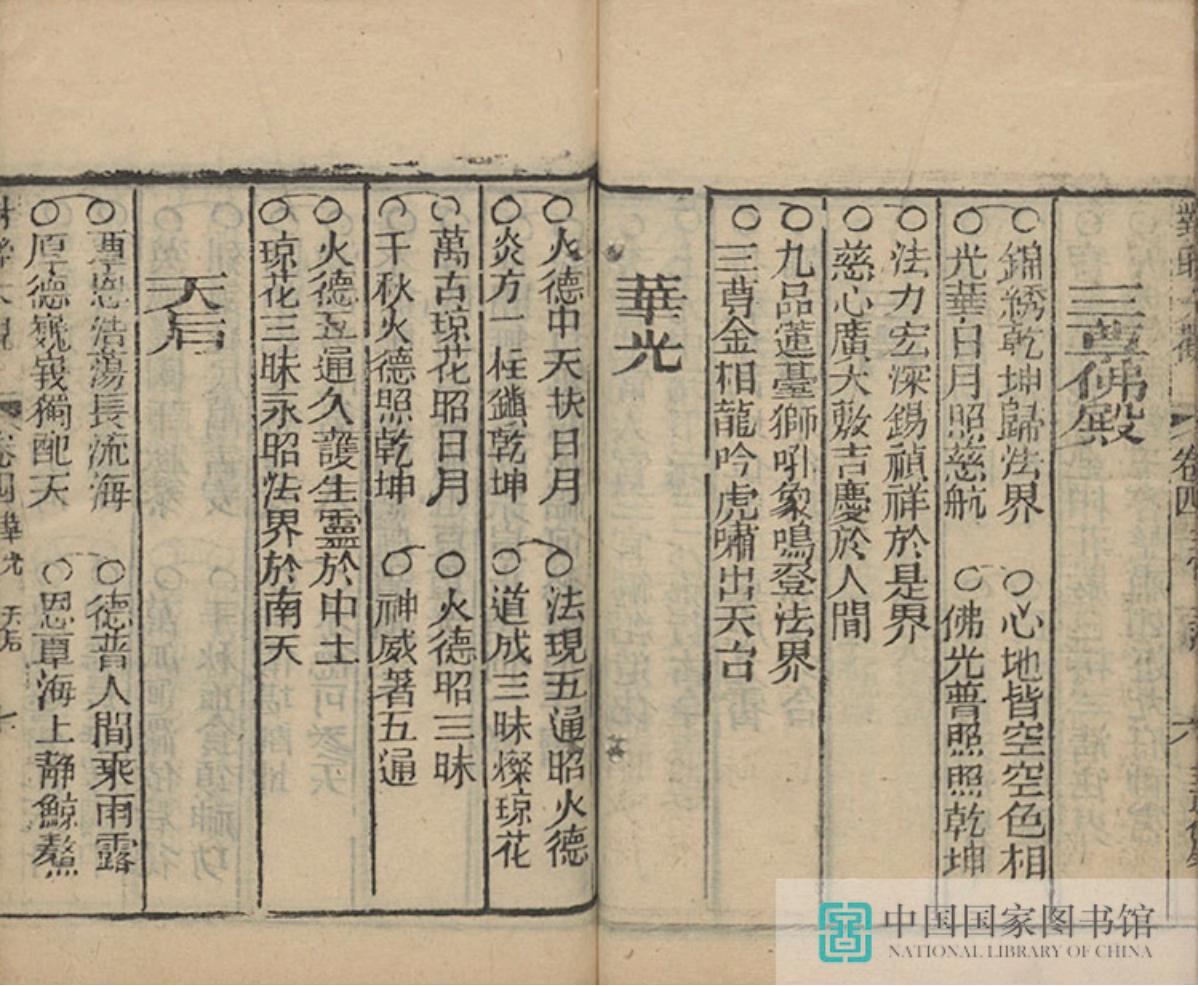 三尊佛殿
○錦綉乾坤歸法界　○心地皆空空色相
○光華日月照慈航　○佛光普照照乾坤
○法力宏深錫禎祥於是界
○慈心廣大敷吉慶於人間
○九品蓮臺獅吼象鳴登法界
○三尊金相龍吟虎嘯出天台
華光
○火德中天扶日月　○法現五通昭火德
○炎方一柱鎮乾坤　○道成三昧燦琼花
○萬古琼花昭日月　○火德昭三昧
○千秋火德照乾坤　○神威著五通
○火德五通久護生靈於中土
○琼花三昧永昭法界於南天
天后
○覃恩浩蕩長流海　○德普人間乘雨露
○厚德巍峩獨配天　○恩覃海上靜鯨鰲
卷四 華光 天后 七
中国国家图书馆
NATIONAL LIBRARY OF CHINA